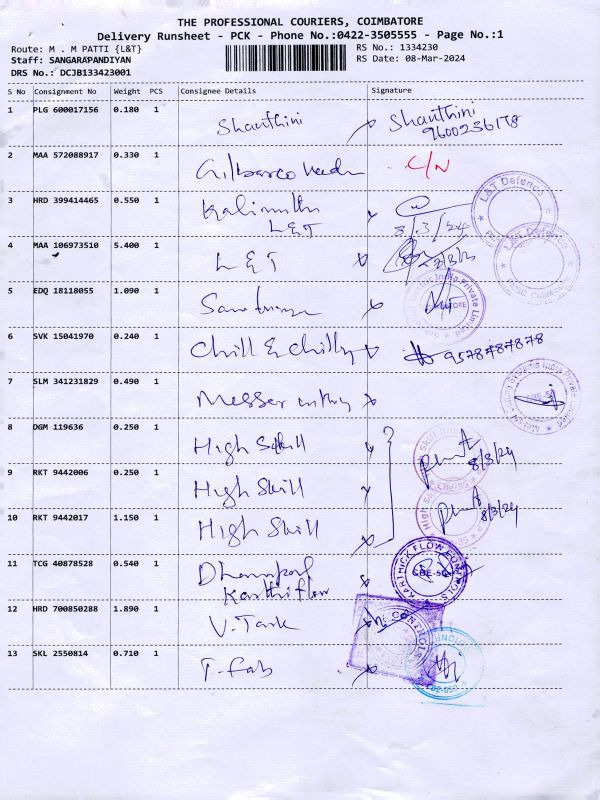 THE PROFESSIONAL COURIERS, COIMBATORE
Delivery Runsheet - PCK - Phone No.:0422-3505555 - Page No.:1
Route: M . M PATTI {L&T} RS No.: 1334230
Staff: SANGARAPANDIYAN RS Date: 08-Mar-2024
DRS No.: DCJB133423001
S No Consignment No Weight PCS Consignee Details Signature
1 PLG 600017156 0.180 1 Shanthini Shanthini
9600236178
2 MAA 572088917 0.330 1 Gilbarco C/N
3 HRD 399414465 0.550 1 Kalimuthu
L&T 8/3/24
L&T Defence
4 MAA 106973510 5.400 1 L&T
L&T Defence
5 EDQ 18118055 1.090 1
India Private Limited
6 SVK 15041970 0.240 1 Chill & Chilly 9578787878
7 SLM 341231829 0.490 1 Messer
Systems India Private
8 DGM 119636 0.250 1 High Skill 8/3/24
9 RKT 9442006 0.250 1 High Skill
High Sk
10 RKT 9442017 1.150 1 High Skill 8/3/24
11 TCG 40878528 0.540 1 Dhanapal
Karthiflow
KARTHICK FLOW CONTROLS
CBE-50
12 HRD 700850288 1.890 1 V.Task
CONTROLS
13 SKL 2550814 0.710 1 T-Fab